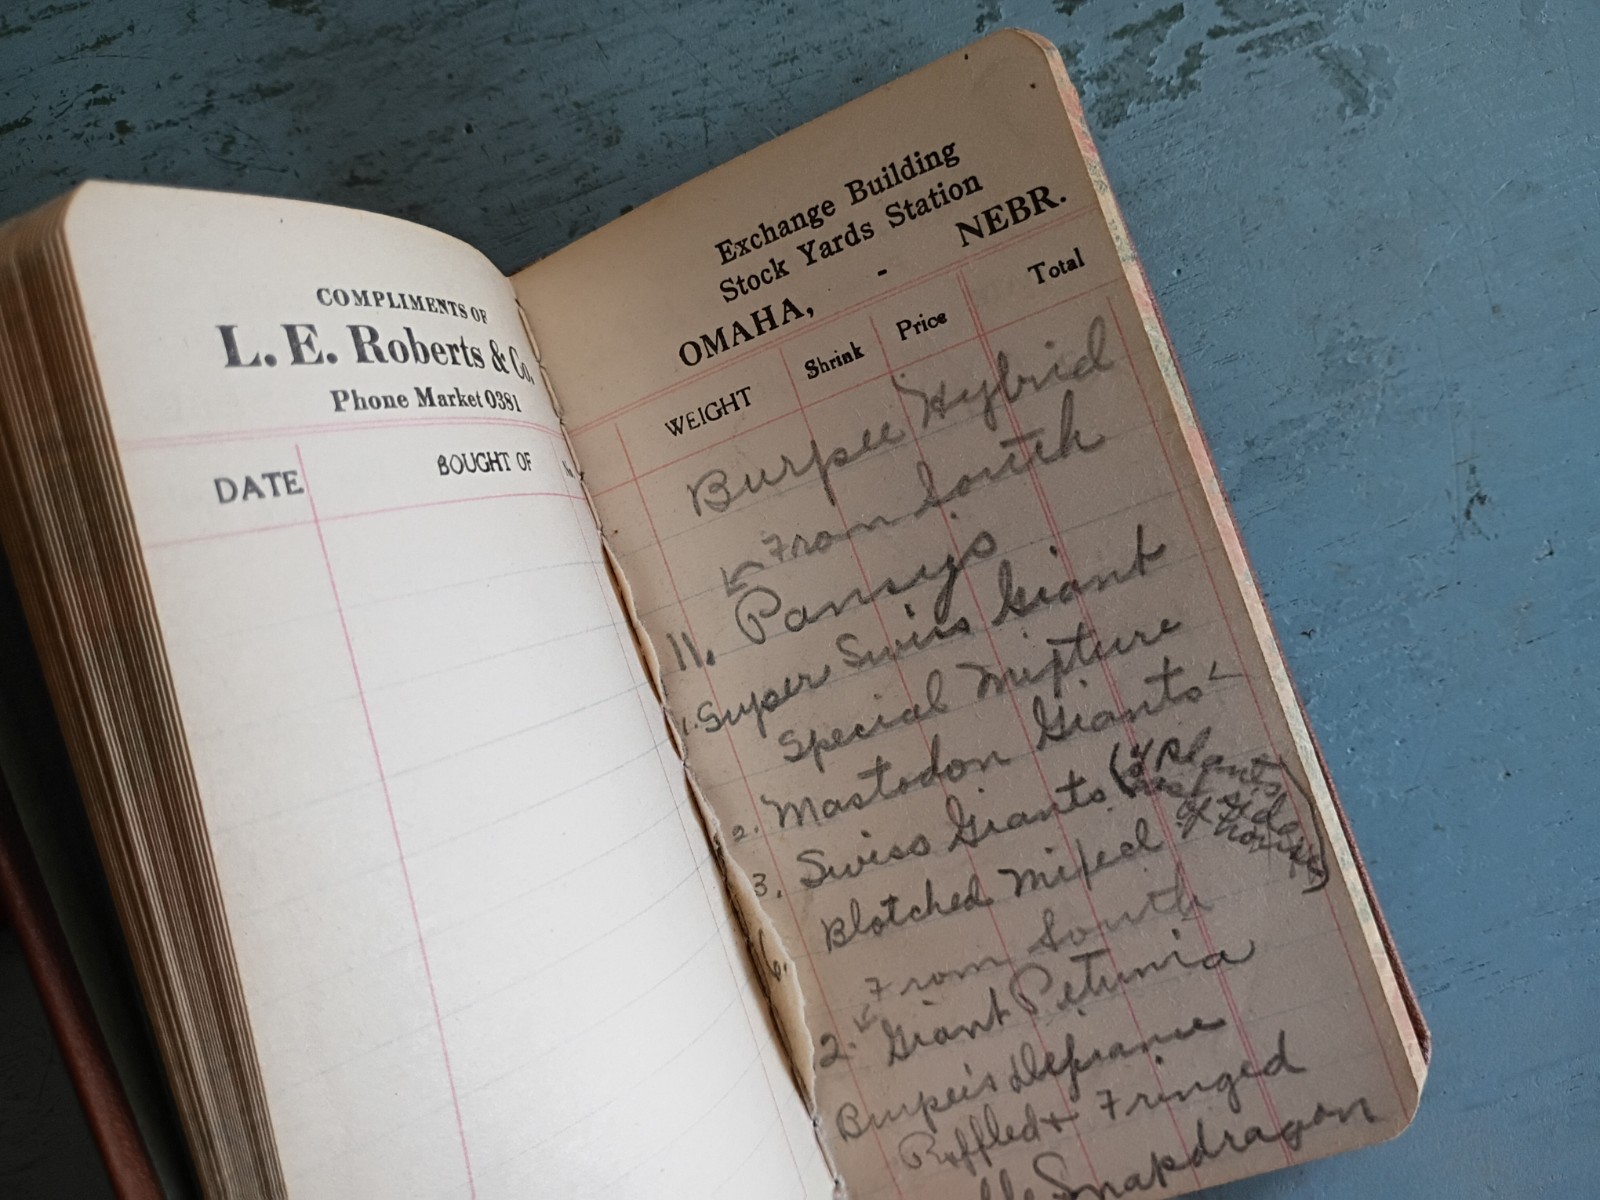 COMPLIMENTS OF
L. E. Roberts & Co.
Phone Market 0381
DATE
BOUGHT OF
Exchange Building
Stock Yards Station
OMAHA, - NEBR.
WEIGHT Shrink Price Total
Burpee Hybrid
From South
11. Pansys
1. Super Swiss Giant
Special Mixture
2. Mastodon Giants
3. Swiss Giants (4 Plants
Blotched Mixed
of house)
6.
From South
2. Giant Petunia
Burpee's Defiance
Ruffled & Fringed
Snapdragon